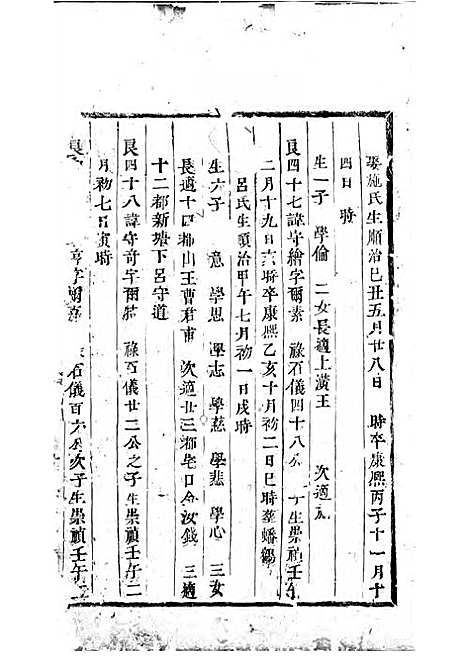 娶施氏生順治己丑五月廿八日 時卒康熙丙子十一月十
四日 時
生一子 學倫 二女長適上潢王 次適
艮四十七諱守繪字爾素 祿石儀四十八公 子生崇禎壬午
二月十九日 時卒康熙乙亥十月初二日巳時葬蟠
呂氏生順治甲午七月初一日戌時
生六子 意 學思 學志 學慈 學悲 學心 三女
長適十四都山王曹君甫 次適廿三都宅口余汝錢 三適
十二都新塘下呂守道
艮四十八諱守奇字爾 祿百儀廿二公之子生崇禎壬午二
月初七日寅時
亨字爾 石儀百六公次子生崇禎壬午